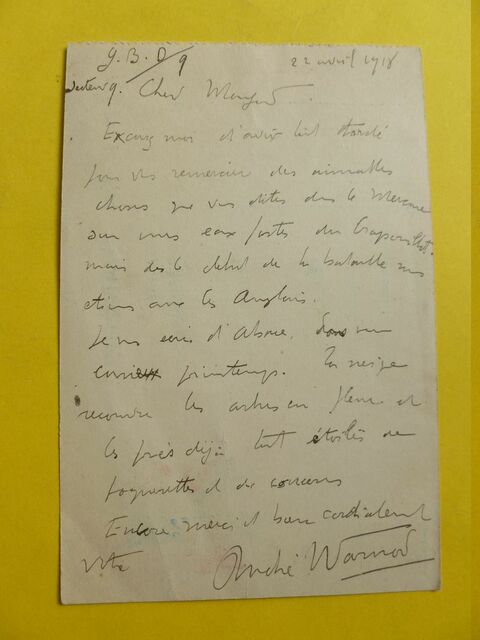 G.B.D/9 22 avril 1918
Secteur 9. Cher
Excusez moi d'avoir tant tardé
pour vs remercier des aimables
choses que vs dites dans le Mercure
sur mes eaux fortes du Crapouillot.
mais dès le début de la bataille ns
étions avec les Anglais.
Je vs écris d'Alsace, dans un
curieux printemps. La neige
recouvre les arbres en fleurs et
les près déjà tout étoilés de
paquerettes et de coucous
Encore merci et bien cordialement
votre André Warnod